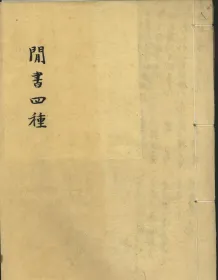 閒書四種